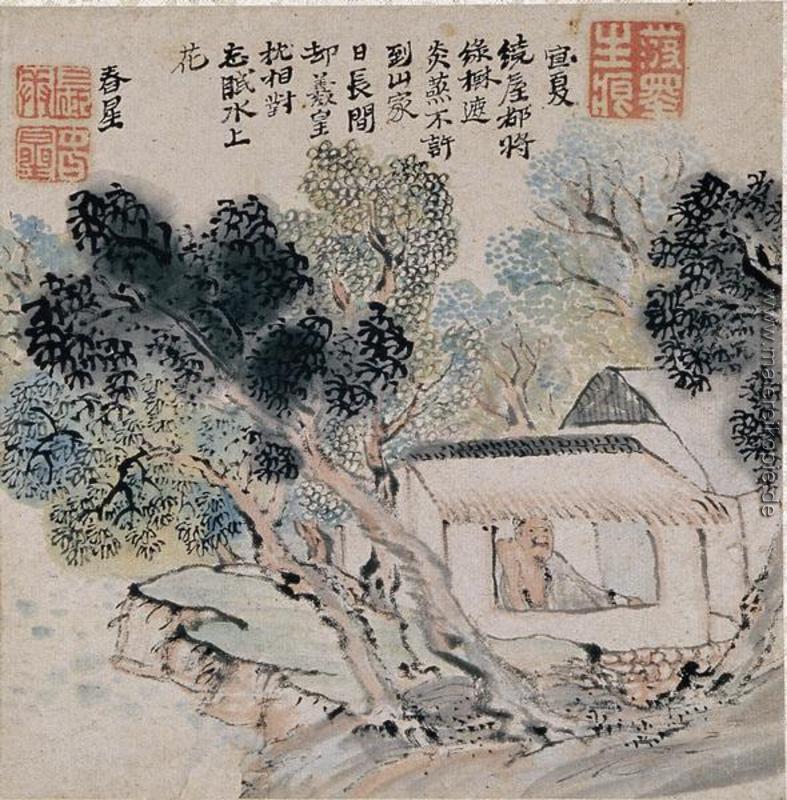 宜夏
繞屋都將
綠樹遮
炎蒸不許
到山家
日長間
却羲皇
枕相對
忘眠水上
花
春星
www.malereikopie.de